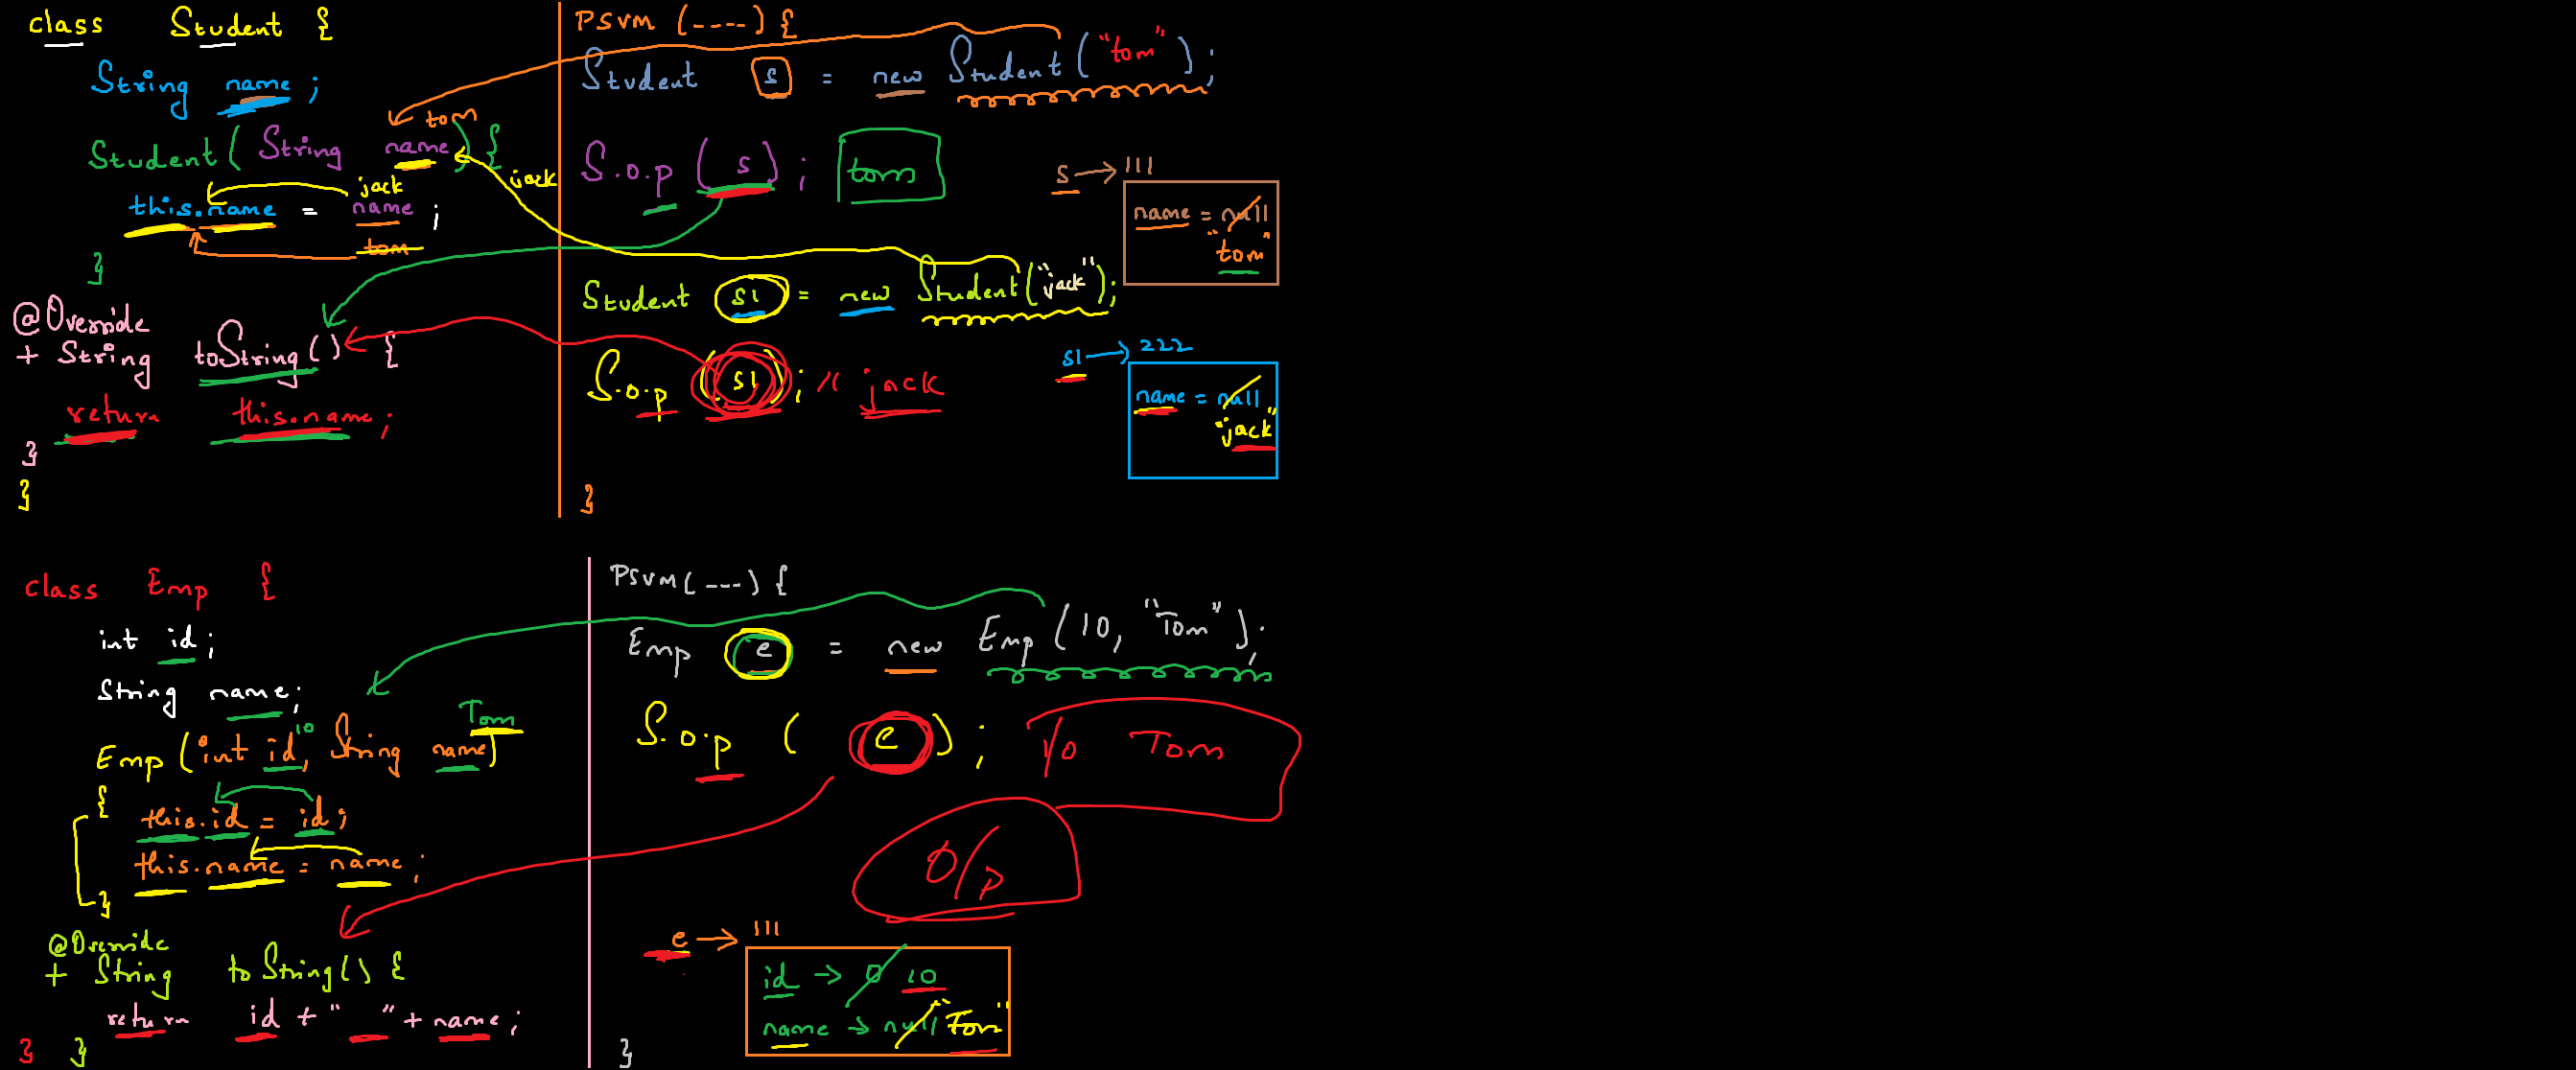 class Student {
String name ;
tom
Student ( String name ) {
jack
this.name = name ;
tom
}
@Override
+ String toString() {
return this.name ;
}
}
PSVM (----) {
Student s = new Student ( "tom" ) ;
S.o.p ( s ) ; tom
jack
Student s1 = new Student ("jack") ;
S.o.p ( s1 ) ; // jack
}
s → 111
name = null
"tom"
s1 → 222
name = null
"jack"
class Emp {
int id ;
String name ;
10 Tom
Emp ( int id, String name )
{
this.id = id ;
this.name = name ;
}
@Override
+ String toString() {
return id + " " + name ;
} }
PSVM (---) {
Emp e = new Emp ( 10, "Tom" ) ;
S.o.p ( e ) ; 10 Tom
O/p
e → 111
id → 0 10
name → null "Tom"
}